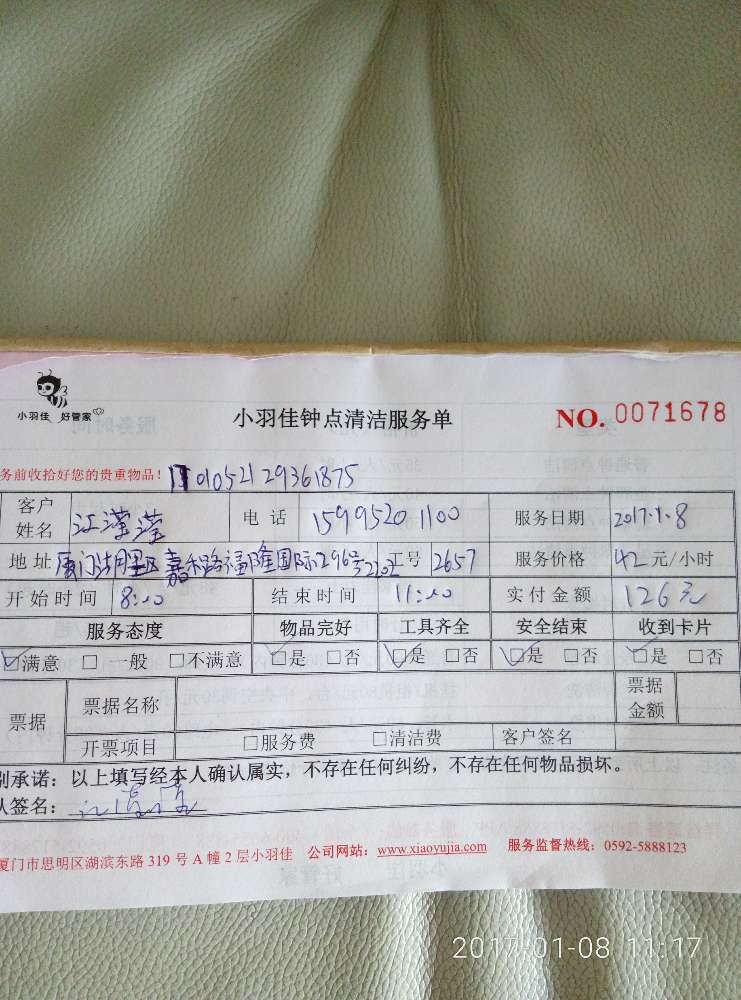 小羽佳 好管家
小羽佳钟点清洁服务单
NO. 0071678
务前收拾好您的贵重物品！ 01052129361875
客户姓名 江滢滢 电话 15995201100 服务日期 2017.1.8
地址 厦门湖里区嘉禾路福隆国际296号2202 工号 2657 服务价格 42元/小时
开始时间 8:00 结束时间 11:00 实付金额 126元
服务态度 物品完好 工具齐全 安全结束 收到卡片
☑满意 □一般 □不满意 ☑是 □否 ☑是 □否 ☑是 □否 ☑是 □否
票据 票据名称 票据金额
开票项目 □服务费 □清洁费 客户签名
别承诺：以上填写经本人确认属实，不存在任何纠纷，不存在任何物品损坏。
人签名：江滢滢
厦门市思明区湖滨东路 319 号 A 幢 2 层小羽佳 公司网站：www.xiaoyujia.com 服务监督热线：0592-5888123
2017-01-08 11:17